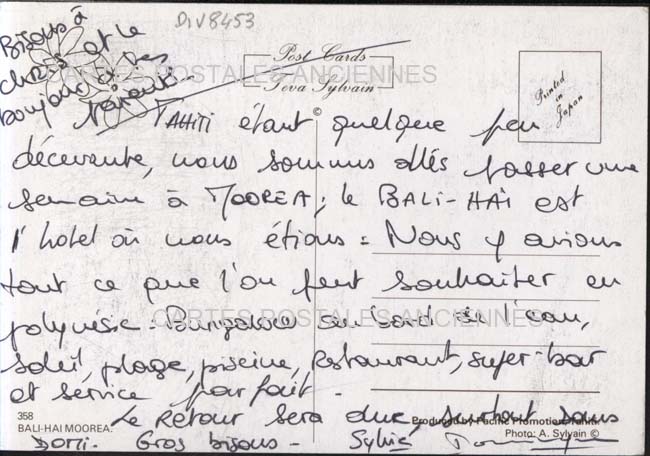 DIV8453
Bisous à
chris et le
bonjour à tes
Parents.
Post Cards
Teva Sylvain
Printed
in
Japan
CARTES POSTALES ANCIENNES
©
TAHITI étant quelque peu
décevante, nous sommes allés passer une
semaine à MOOREA; le BALI-HAI est
l'hotel où nous étions = Nous y avions
tout ce que l'on peut souhaiter en
polynésie - Bungalow au bord de l'eau,
CARTES POSTALES ANCIENNES
soleil, plage, piscine, restaurant, super-bar
et service parfait -
Le Retour sera dur, surtout sans
Domi - Gros bisous - Sylvie Dominique
358
BALI-HAI MOOREA.
Produced by Pacific Promotion Tahiti
Photo: A. Sylvain ©